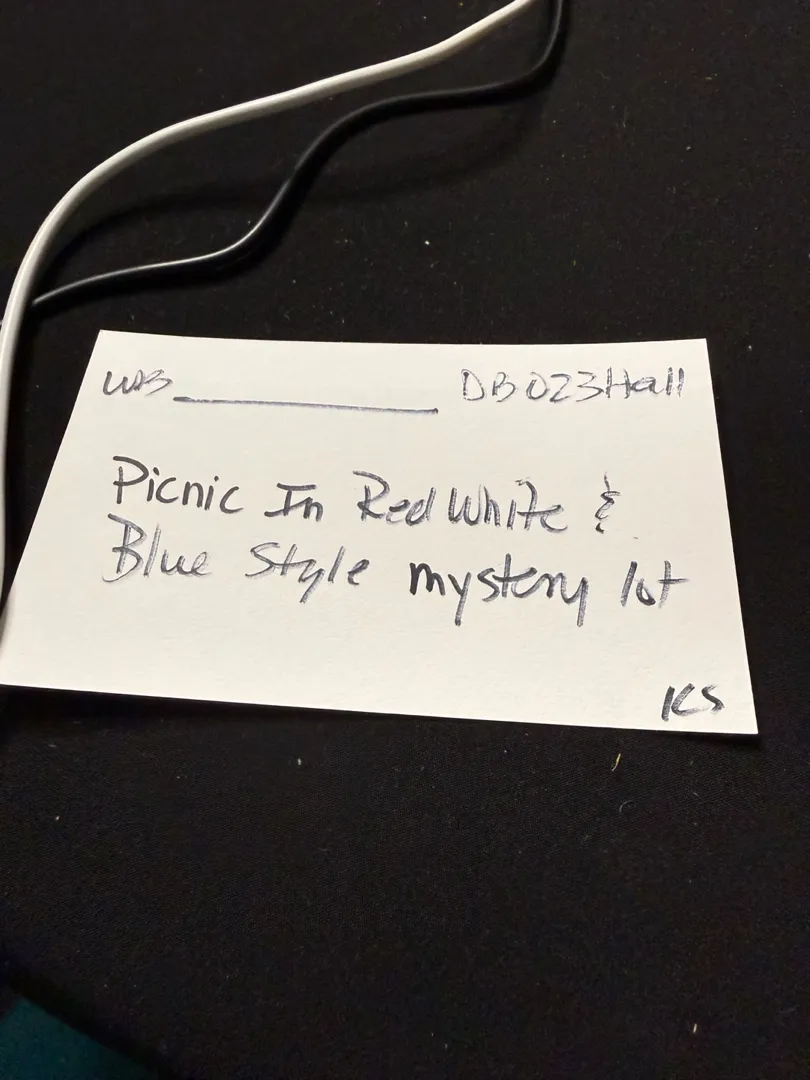 WB__________ DB023Hall
Picnic In Red White &
Blue Style mystery lot
KS